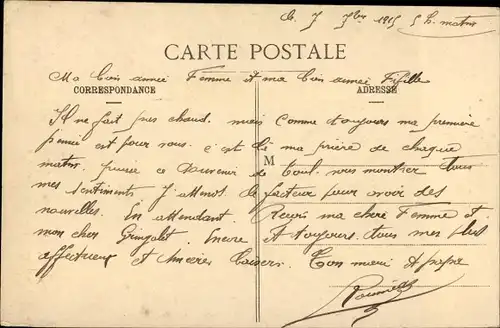 le 7 7bre 1915 5 h. matin
CARTE POSTALE
Ma bien aimée Femme et ma bien aimée Fifille
CORRESPONDANCE ADRESSE
Il ne fait pas chaud. mais comme toujours ma première
pensée est pour vous. c'est là ma prière de chaque
M
matin. puisse ce souvenir de Toul. vous montrer tous
mes sentiments J'attends le facteur pour avoir des
nouvelles. En attendant. Reçois ma chère Femme et.
mon cher Gringalet. Encore et toujours. tous mes plus
affectueux et sincères baisers. Ton mari et papa